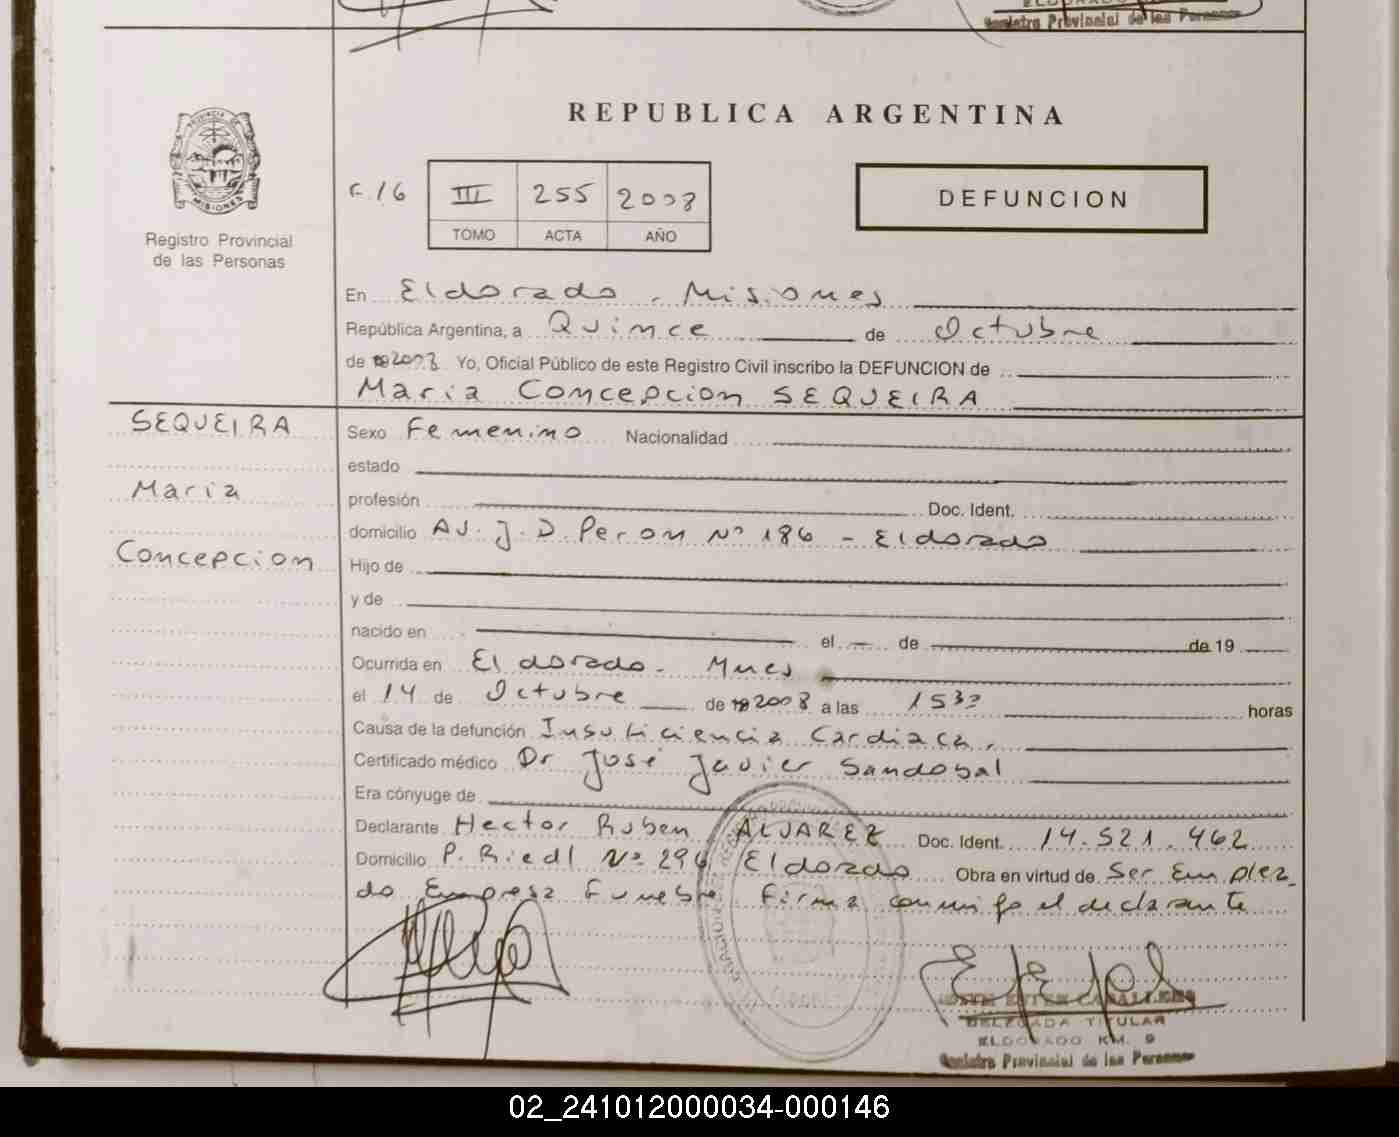 Registro Provincial de las Personas
REPUBLICA ARGENTINA
PROVINCIA DE
MISIONES
Registro Provincial
de las Personas
III 255 2008
TOMO ACTA AÑO
DEFUNCION
En Eldorado, Misiones
República Argentina, a Quince de Octubre
de 2008 Yo, Oficial Público de este Registro Civil inscribo la DEFUNCION de
Maria Concepcion SEQUEIRA
SEQUEIRA
Maria
Concepcion
Sexo Femenino Nacionalidad
estado
profesión Doc. Ident.
domicilio Av. J. D. Peron Nº 186 - Eldorado
Hijo de
y de
nacido en el - de de 19
Ocurrida en Eldorado - Mnes
el 14 de Octubre de 2008 a las 1530 horas
Causa de la defunción Insuficiencia Cardiaca,
Certificado médico Dr José Javier Sandobal
Era cónyuge de
Declarante Hector Ruben ALVAREZ Doc. Ident. 14.521.462
Domicilio P. Riedl Nº 296 Eldorado Obra en virtud de Ser Emplea
do Empresa Funebre Firma conmigo el declarante
CABALLERO
DELEGADA TITULAR
ELDORADO KM. 9
Registro Provincial de las Personas
02_241012000034-000146